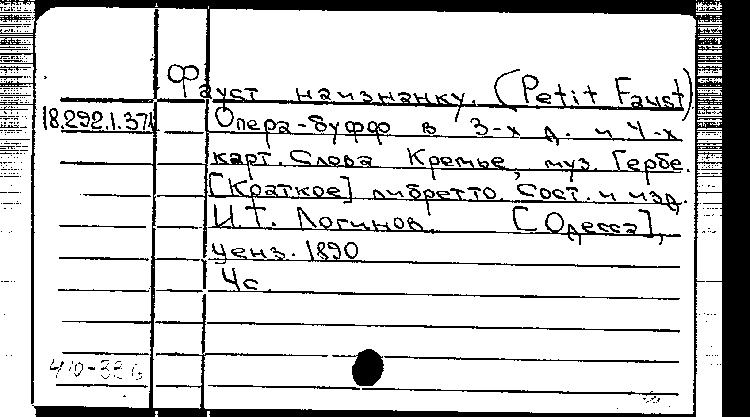 Фауст наизнанку. (Petit Faust)
18.292.1.371 Опера-буфф в 3-х д. и 4-х
карт. Слова Кремье, муз. Гербе.
[Краткое] либретто. Сост. и изд.
И.Т. Логинов. [Одесса],
ценз. 1890
4с.